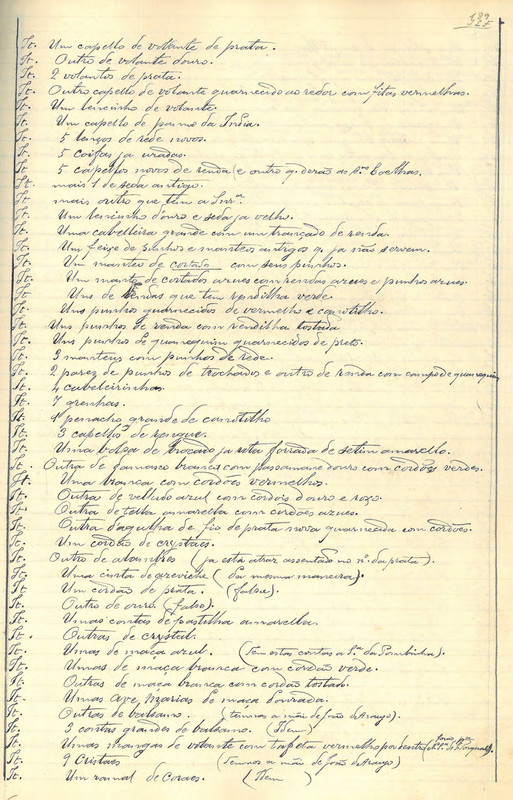 189
It. Um capello de volante de prata.
It. Outro de volante douro.
It. 2 volantes de prata.
It. Outro capello de volante guarnecido ao redor com fitas vermelhas.
It. Um lencinho de volante.
It. Um capello de panno da India.
It. 5 lenços de rede novos.
It. 5 coifas ja uzadas.
It. 5 capellos novos de renda (e outro q derão as Coelhas.
It. mais 1 de seda antigo.
It. mais outro que tem a
It. Um lencinho d'ouro e seda ja velho.
It. Uma cabelleira grande com um trançado de renda.
It. Um feixe de punhos e manteos antigos q. ja não servem.
It. Um manteo de cortado com seus punhos.
It. Um manteo de cortados azues com rendas azues e punhos azues.
It. Uns de rendas que tem rendilha verde.
It. Uns punhos guarnecidos de vermelho e canotilho.
It. Uns punhos de renda com rendilha tostada
It. Uns punhos de guarnecidos de preto.
It. 3 manteus com punhos de rede.
It. 2 parez de punhos de trochados e outro de renda com campo de
It. 4 cabeleirinhas.
It. 7 grenhas.
It. 1 penacho grande de canotilho
It. 3 capellos de rengue.
It. Uma bolça de brocado ja rota forrada de setim amarello.
It. Outra de damasco branca com passamane douro com cordões verdes.
It. Uma branca com cordões vermelhos.
It. Outra de velludo azul com cordois douro e roxo.
It. Outra de tella amarella com cordões azues.
It. Outra d'agulha de fio de prata nova guarnecida com cordões.
It. Um cordão de crystaes.
It. Outro de alambres (ja está atraz assentado no n.º da prata).
It. Uma cinta de azeviche (da mesma maneira).
It. Um cordão de prata. (falso).
It. Outro de ouro. (falso).
It. Umas contas de pastilha amarella.
It. Outras de crystal.
It. Umas de maça azul. (Tem estas contas a Sr.ª da Pombinha).
It. Umas de maça branca com cordão verde.
It. Outras de maça branca com cordão tostado.
It. Umas Ave Marias de maça dourada.
It. Outras de balsamo. (tem-nos a mãe de João de Araujo).
It. 3 contas grandes de balsamo. (Idem)
It. Umas mangas de volante com tafeta vermelho por dentro
It. 9 Cristaes (Tem-nos a mãe de João de Araujo)
It. Um ramal de Coraes. (Idem)